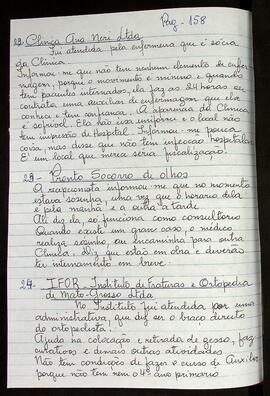 Pag - 158
22. Clínica Ana Neri Ltda
Fui atendida pela enfermeira que é sócia
da Clínica.
Informou-me que não tem nenhum elemento de enfer-
magem, porque o movimento é mínimo e quando
tem pacientes internados, ela faz as 24 horas ou
contrata uma auxiliar de enfermagem que ela
conhece e tem confiança. A aparencia da Clinica
é sofrivel. Ela não usa uniforme e o local não
tem impressão de Hospital. Informou-me pouca
coisa, mas disse que não tem infecção hospitalar
É um local que merece séria fiscalização!
23 - Pronto Socorro de olhos
A recepcionista informou-me que no momento
estava sozinha, uma vez que o horário dela
é pela manhã e o a tarde.
Ali diz ela, só funciona como consultório
Quando existe um grande caso, o médico
realiza sozinho, ou encaminha para outra
Clínica. Diz que estão em obra e deverão
ter internamento em breve.
24 - IFOR - Instituto de Fraturas e Ortopedia
de Mato-Grosso Ltda.
No Instituto fui atendida por uma
administrativa, que diz ser o braço direito
do ortopedista!
Ajuda na colocação e retirada de gesso, faz
curativos e demais outras atividades
Não tem condições de fazer o curso de Auxiliar
porque não tem nem o 4º ano primario